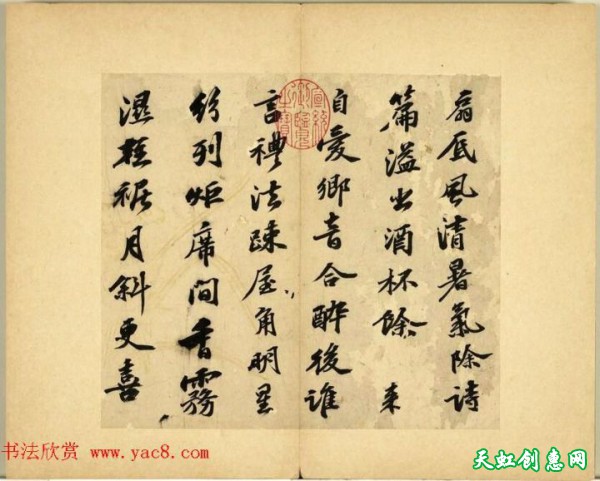 扇底風清暑氣除詩
篇溢出酒杯餘 来
自愛鄉音合醉後誰
言禮法踈屋角明星
紛列炬席間香霧
濕輕裾月斜更喜
宣統御覽之寶
书法欣赏 www.yac8.com
天虹创惠网